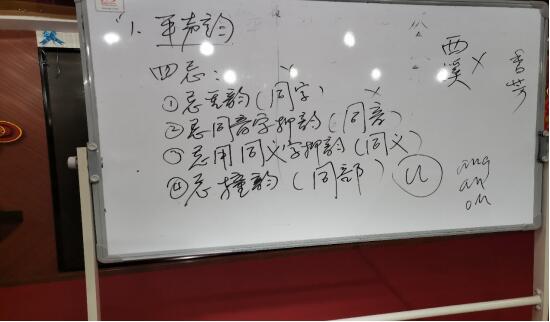 1. 平声韵
四忌:
①忌重韵(同字)
②忌同音字押韵(同音)
③忌用同义字押韵(同义)
④忌撞韵(同部)
u
西溪 x
香芳
ang
an
ou